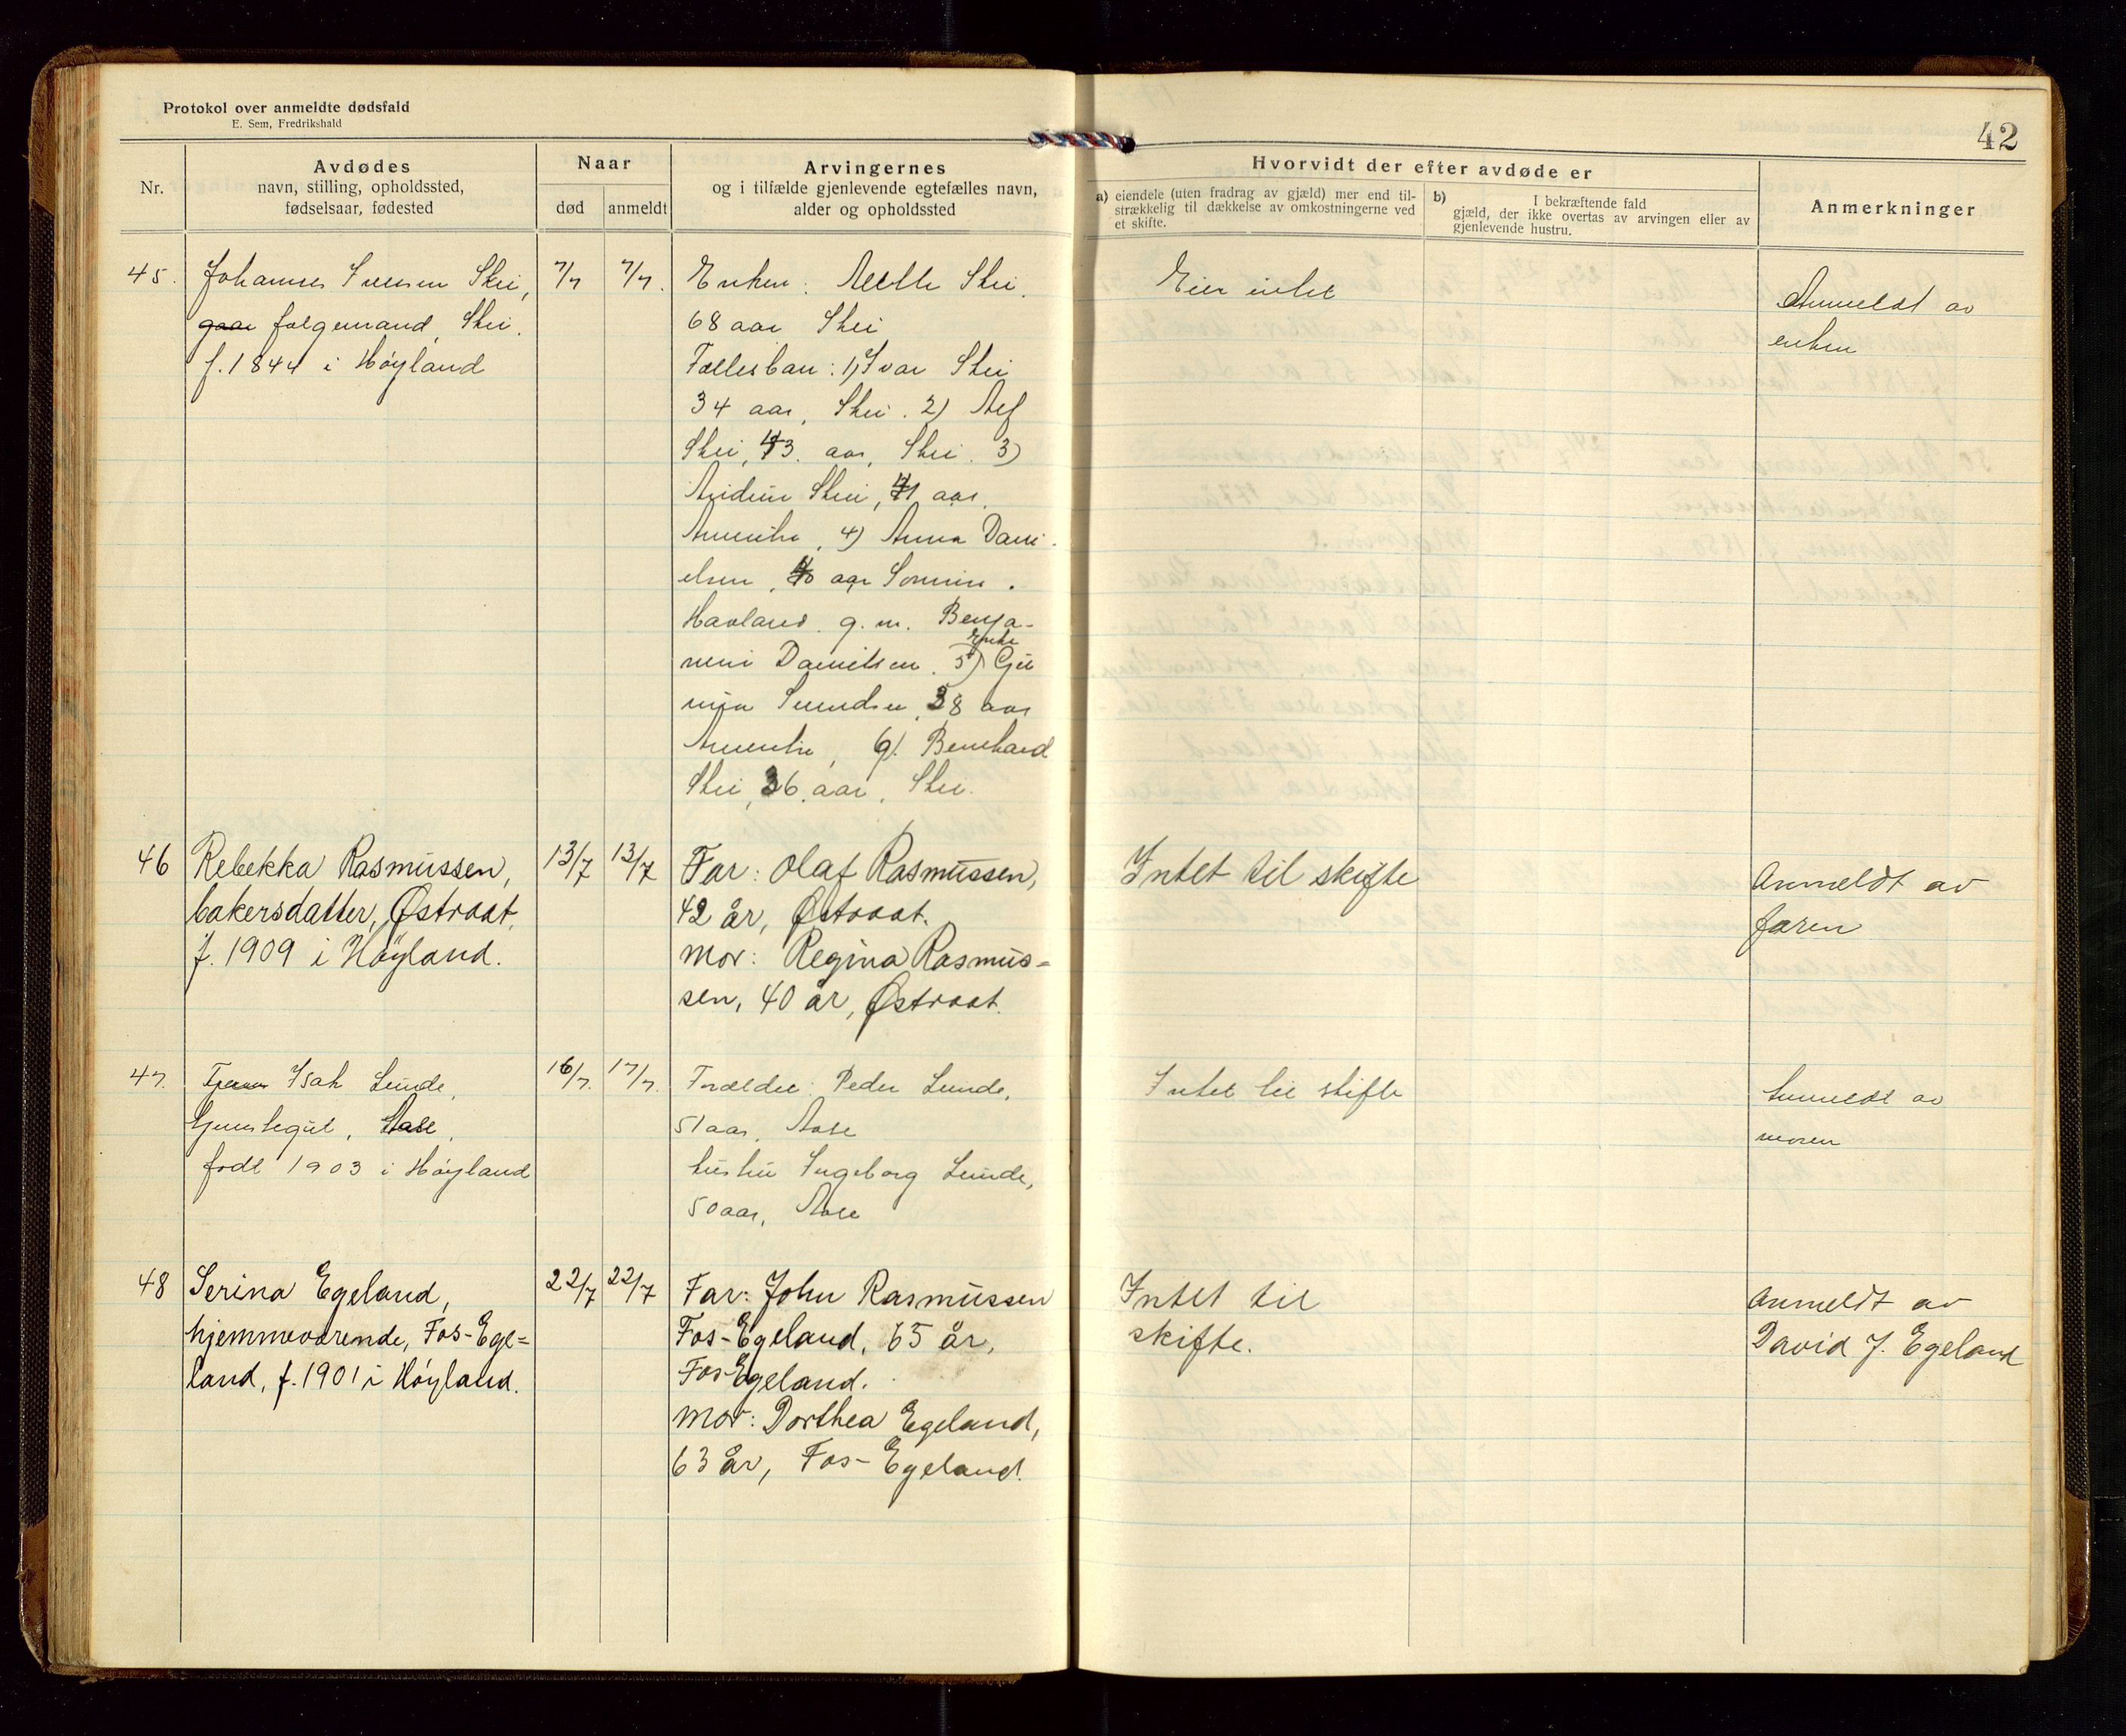 Protokol over anmeldte dødsfald
E. Sem, Fredrikshald
42
Nr.
Avdødes
navn, stilling, opholdssted,
fødselsaar, fødested
Naar
død
anmeldt
Arvingernes
og i tilfælde gjenlevende egtefælles navn,
alder og opholdssted
Hvorvidt der efter avdøde er
a) eiendele (uten fradrag av gjæld) mer end til-
strækkelig til dækkelse av omkostningerne ved
et skifte.
b) I bekræftende fald
gjæld, der ikke overtas av arvingen eller av
gjenlevende hustru.
Anmerkninger
45.
Johannes Svensen Skei,
gaar følgemand, Skei.
f. 1844 i Høyland
7/7
7/7.
Enken: Skei.
68 aar Skei
Fællesbarn: 1) Ivar Skei
34 aar, Skei. 2) Alf
Skei, 43. aar, Skei. 3)
Skei, 41 aar,
Amerika, 4) Anna Dani-
elsen, 40 aar
Havland g. m. Benja-
min Danielsen. 5) Enke
38 aar
Amerika, 6) Bernhard
Skei, 36 aar, Skei.
Eier intet
Anmeldt av
enken
46
Rebekka Rasmussen,
bakersdatter, Østraat,
f. 1909 i Høyland.
13/7
13/7
Far: Olaf Rasmussen,
42 år, Østraat.
Mor: Regina Rasmus=
sen, 40 år, Østraat.
Intet til skifte
Anmeldt av
faren
47.
Isak Lunde,
Aase,
født 1903 i Høyland
16/7.
17/7.
Forældre: Peder Lunde,
51 aar, Aase
hustru Ingeborg Lunde,
50 aar, Aase
Intet til skifte
Anmeldt av
moren
48
Serina Egeland,
hjemmeværende, Fos-Ege=
land, f. 1901 i Høyland.
22/7
22/7
Far: John Rasmussen
Fos-Egeland, 65 år,
Fos-Egeland.
Mor: Dorthea Egeland,
63 år, Fos-Egeland.
Intet til
skifte.
Anmeldt av
David J. Egeland